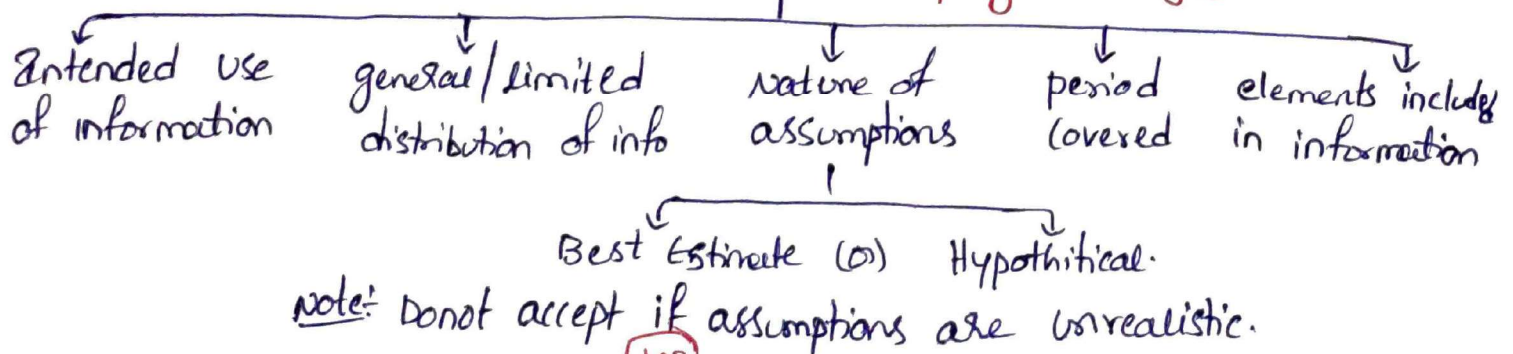 Intended use
of information
general/limited
distribution of info
Nature of
assumptions
period
covered
elements included
in information
Best Estimate (or) Hypothitical.
Note: Donot accept if assumptions are unrealistic.